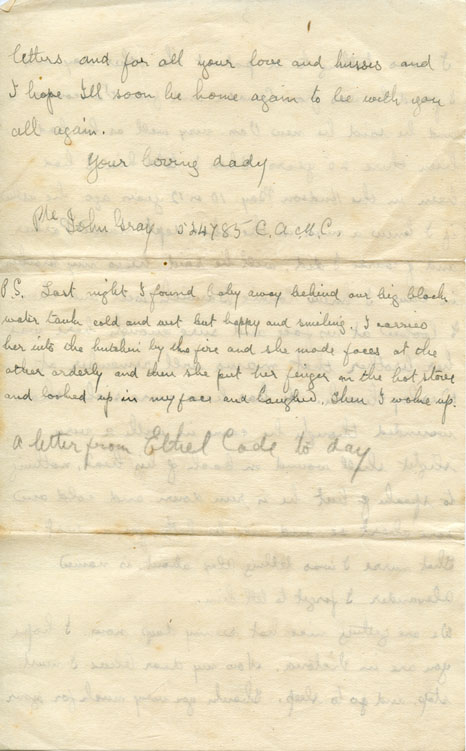 letters and for all your love and kisses and
I hope I'll soon be home again to be with you
all again.
Your loving dady
Pte John Gray 524785 C.A.M.C
P.S. Last night I found baby away behind our big black
water tank cold and wet but happy and smiling. I carried
her into the kitchen by the fire and she made faces at the
other orderly and then she put her finger on the hot stove
and looked up in my face and laughed. Then I woke up.
A letter from Ethel Code to day